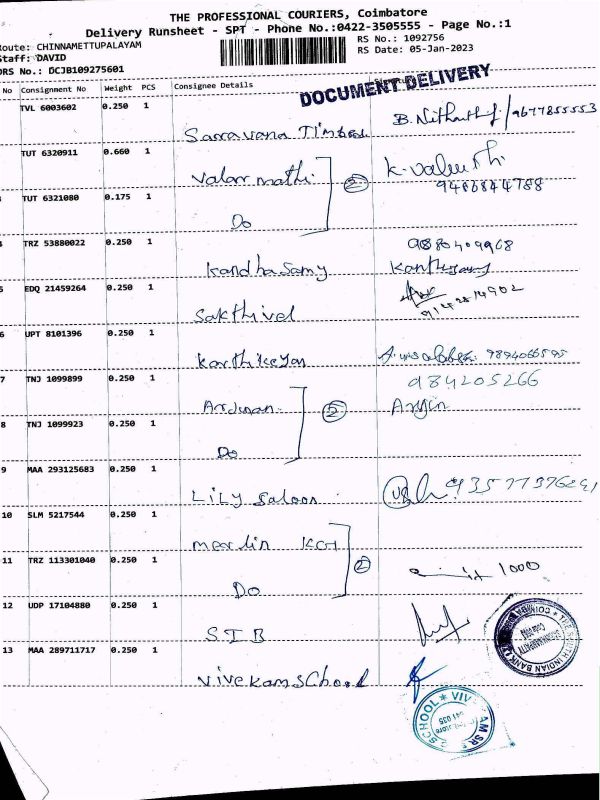 THE PROFESSIONAL COURIERS, Coimbatore
Delivery Runsheet - SPT - Phone No.:0422-3505555 - Page No.:1
Route: CHINNAMETTUPALAYAM
RS No.: 1092756
Staff: DAVID
RS Date: 05-Jan-2023
DRS No.: DCJB109275601
No Consignment No Weight PCS Consignee Details
DOCUMENT DELIVERY
TVL 6003602 0.250 1
Saravana Timber B. /9677855553
TUT 6320911 0.660 1
Valar mathi ② K.
TUT 6321080 0.175 1
9486844788
Do
TRZ 53880022 0.250 1
9880409968
Kandhasamy
5 EDQ 21459264 0.250 1
Sakthivel
6 UPT 8101396 0.250 1
Karthikeyan
7 TNJ 1099899 0.250 1
984205266
Arjunan ②
8 TNJ 1099923 0.250 1
Do
9 MAA 293125683 0.250 1
LiLy Saloon
10 SLM 5217544 0.250 1
merlin
11 TRZ 113301040 0.250 1
② 1000
Do
12 UDP 17104880 0.250 1
SIB
THE SOUTH INDIAN BANK COIMBATORE
13 MAA 289711717 0.250 1
Vivekam School
SCHOOL * VIVEKAM SR
641 035